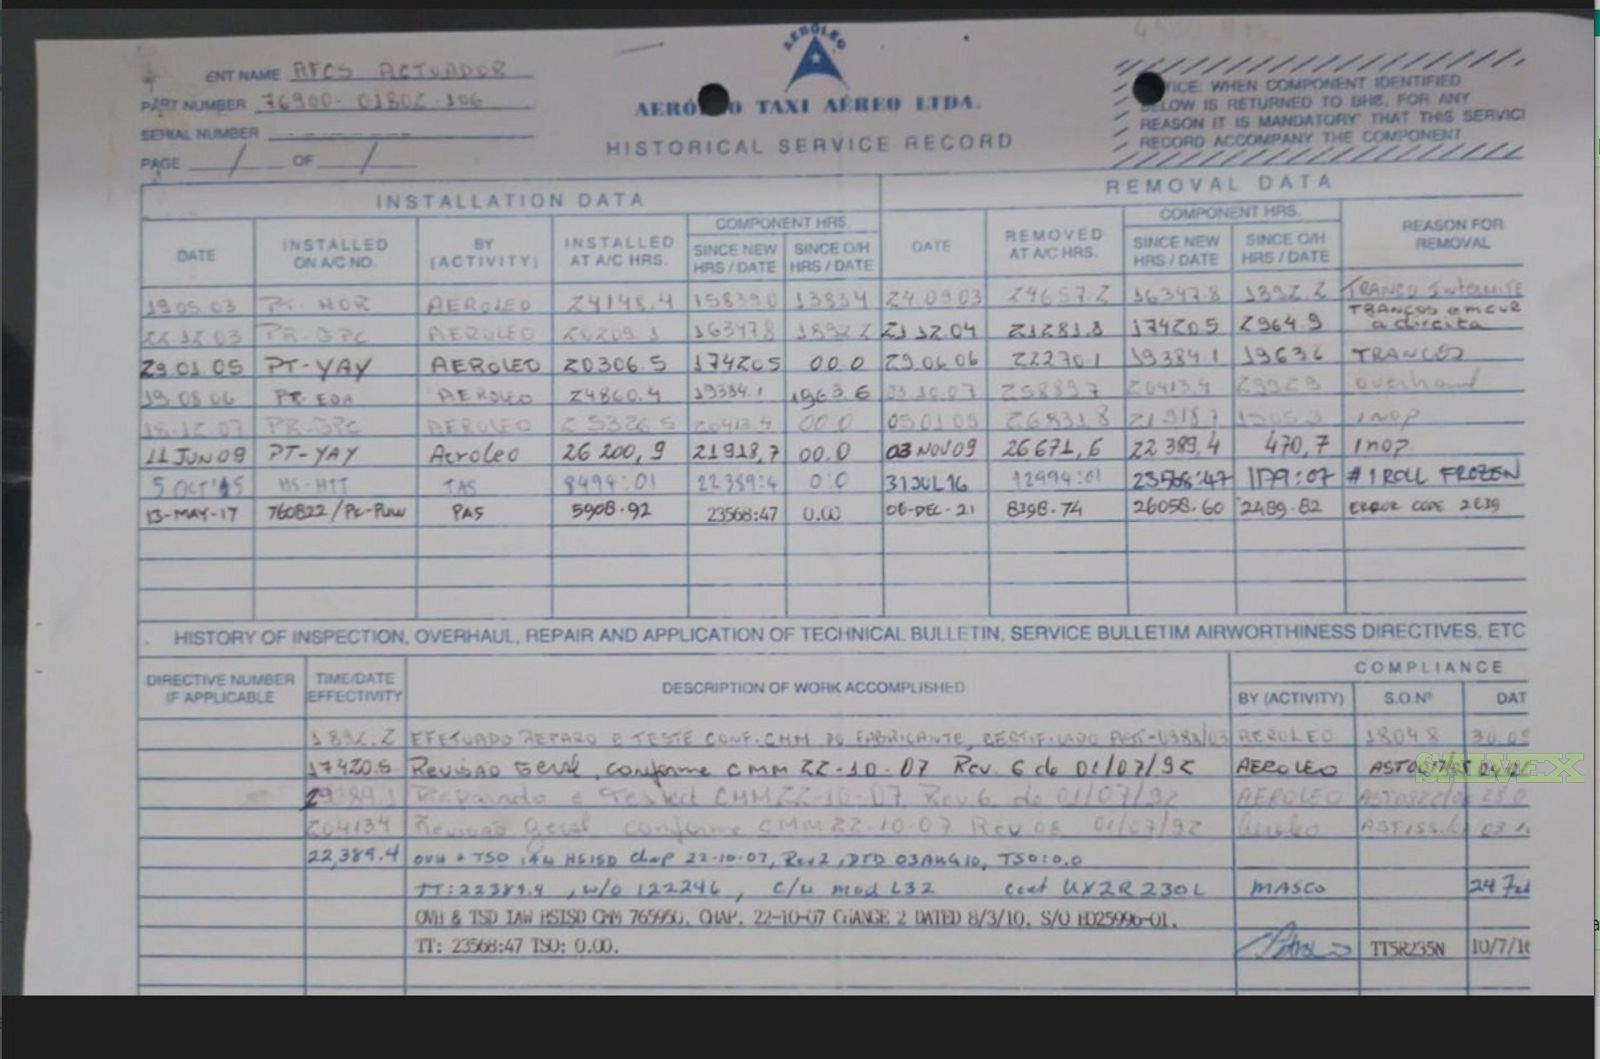 AERÓLEO
ENT NAME AFCS ACTUADOR
PART NUMBER 76900-01802-106
SERIAL NUMBER
PAGE / OF /
AERÓ O TAXI AÉREO LTDA.
HISTORICAL SERVICE RECORD
TICE: WHEN COMPONENT IDENTIFIED
LOW IS RETURNED TO BHS, FOR ANY
REASON IT IS MANDATORY THAT THIS SERVICI
RECORD ACCOMPANY THE COMPONENT
INSTALLATION DATA REMOVAL DATA
COMPONENT HRS. COMPONENT HRS.
DATE INSTALLED ON A/C NO. BY (ACTIVITY) INSTALLED AT A/C HRS. SINCE NEW HRS / DATE SINCE O/H HRS / DATE DATE REMOVED AT A/C HRS. SINCE NEW HRS / DATE SINCE O/H HRS / DATE REASON FOR REMOVAL
19.05.03 AEROLEO 24148.4 24.09.03 24657.2 16347.8 1892.2
22.12.03 PR-GPC AEROLEO 20209.1 16347.8 1892.2 21.12.04 21281.8 17420.5 2964.9 a direita
29.01.05 PT-YAY AEROLEO 20306.5 17420.5 00.0 29.06.06 22270.1 19384.1 1963.6 TRANCOS
19.08.06 AEROLEO 24860.4 19384.1 1963.6 03.10.07 20413.4 overhaul
18.12.07 PR-GPC AEROLEO 25326.5 20413.4 00.0 05.01.09 26831.8 21918.7 INOP
11 JUN 09 PT-YAY Aeroleo 26 200,9 21918,7 00.0 03 NOV 09 26671,6 22 389,4 470,7 Inop
5 OCT'15 HS-HTT TAS 8494:01 22389:4 0:0 31 JUL 16 12994:01 23568:47 1179:07 #1 ROLL FROZEN
13-MAY-17 760822/PK-PUW PAS 5908.92 23568:47 0.00 06-DEC-21 8398.74 26058.60 2489.82 ERROR CODE 2E39
HISTORY OF INSPECTION, OVERHAUL, REPAIR AND APPLICATION OF TECHNICAL BULLETIN, SERVICE BULLETIM AIRWORTHINESS DIRECTIVES, ETC
COMPLIANCE
DIRECTIVE NUMBER IF APPLICABLE TIME/DATE EFFECTIVITY DESCRIPTION OF WORK ACCOMPLISHED BY (ACTIVITY) S.O.Nº DAT
1892.2 EFETUADO REPARO E TESTE CONF. CMM DO FABRICANTE, CERTIFICADO AEROLEO 18048
17420.5 Revisão Geral, conforme CMM 22-10-07 Rev. 6 de 01/07/92 AEROLEO
Reparado e Tested CMM 22-10-07 Rev. 6 de 01/07/92 AEROLEO
20413.4 Revisão Geral conforme CMM 22-10-07 Rev 06 01/07/92
22,389.4 OVH & TSD IAW HSISD Chap 22-10-07, Rev 2, DTD 03AUG10, TSO: 0.0
TT: 22389.4, W/O 122246, C/W mod L32 cert UX2R230L MASCO 24
OVH & TSD IAW HSISD CMM 765950, CHAP. 22-10-07 CHANGE 2 DATED 8/3/10, S/O HD25996-01.
TT: 23568:47 TSO: 0.00. TT5R235N 10/7/16
SALVEX